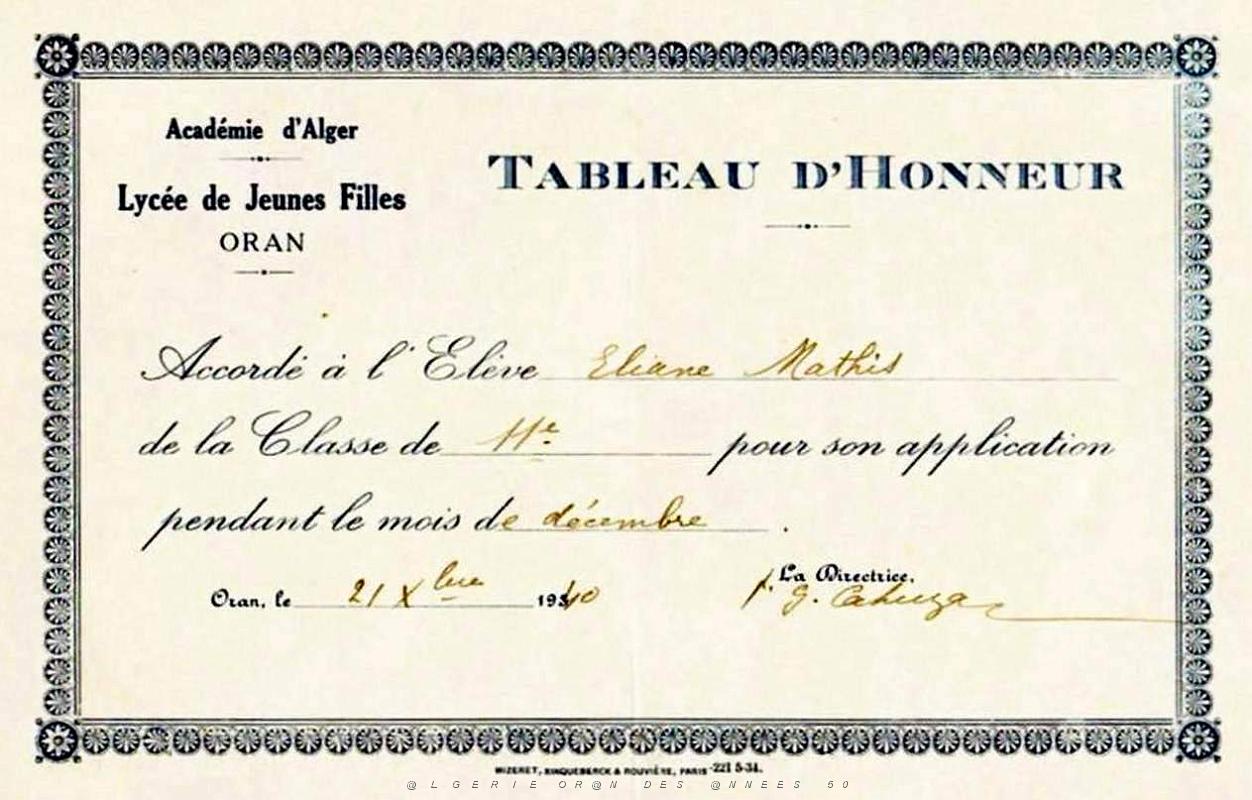 Académie d'Alger
Lycée de Jeunes Filles
ORAN
TABLEAU D'HONNEUR
Accordé à l'Elève Eliane Mathis
de la Classe de 11e pour son application
pendant le mois de décembre .
Oran, le 21 Xbre 1940
La Directrice,
G.
, PARIS - 221 5-34.
@LGERIE OR@N DES @NNEES 50